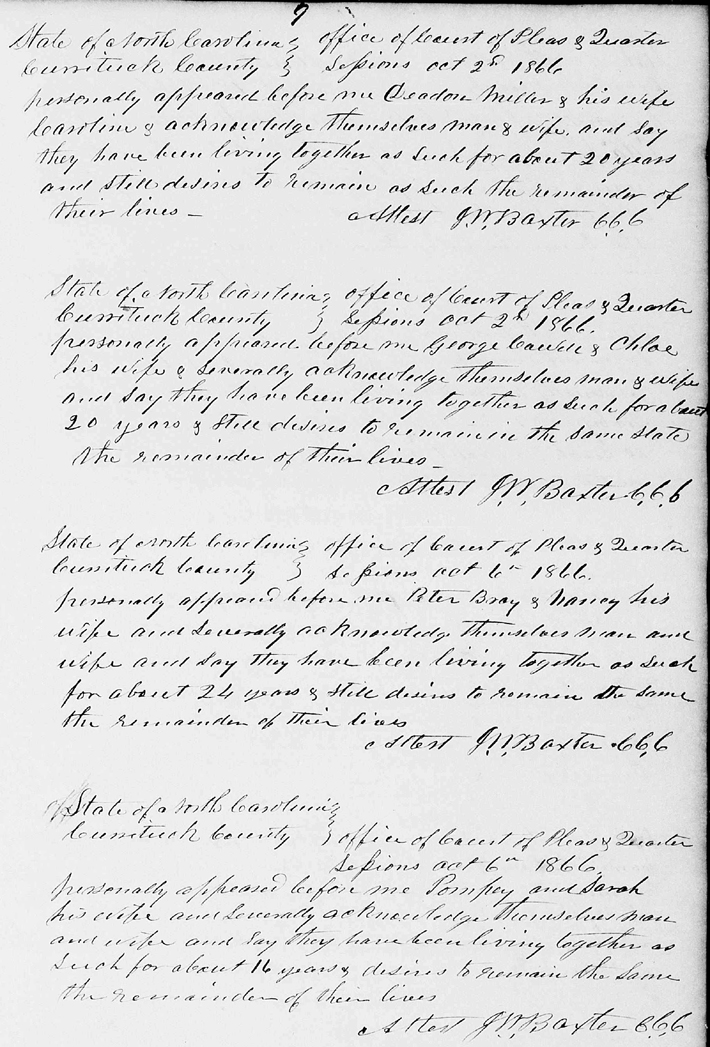 9
State of North Carolina } office of Court of Pleas & Quarter
Currituck County } Sessions oct 2nd 1866
personally appeared before me Ceadon Miller & his wife
Caroline & acknowledge themselves man & wife, and say
they have been living together as such for about 20 years
and still desires to remain as such the remainder of
their lives —
Attest J. W. Baxter C.C.C
State of North Carolina } office of Court of Pleas & Quarter
Currituck County } Sessions oct 2nd 1866.
personally appeared before me George & Chloe
his wife & severally acknowledge themselves man & wife
and say they have been living together as such for about
20 years & still desires to remain in the same state
the remainder of their lives —
Attest J. W. Baxter C.C.C
State of North Carolina } office of Court of Pleas & Quarter
Currituck County } Sessions oct 6th 1866.
personally appeared before me Peter Bray & Nancy his
wife and severally acknowledge themselves man and
wife and say they have been living together as such
for about 24 years & still desires to remain the same
the remainder of their lives
Attest J. W. Baxter C.C.C
State of North Carolina }
Currituck County } office of Court of Pleas & Quarter
Sessions oct 6th 1866.
personally appeared before me Pompey and Sarah
his wife and severally acknowledge themselves man
and wife and say they have been living together as
such for about 16 years & desires to remain the same
the remainder of their lives
Attest J. W. Baxter C.C.C